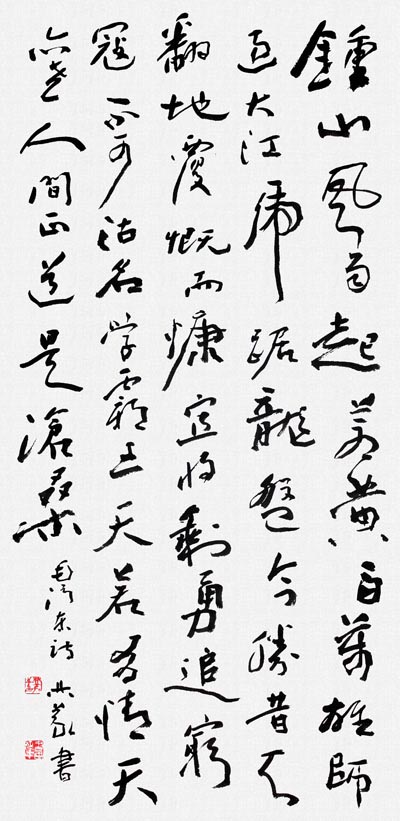 鍾山風雨起蒼黄百萬雄師
過大江虎踞龍盤今勝昔天
翻地覆慨而慷宜將剩勇追窮
寇不可沽名學霸王天若有情天
亦老人間正道是滄桑
毛澤東詩 書